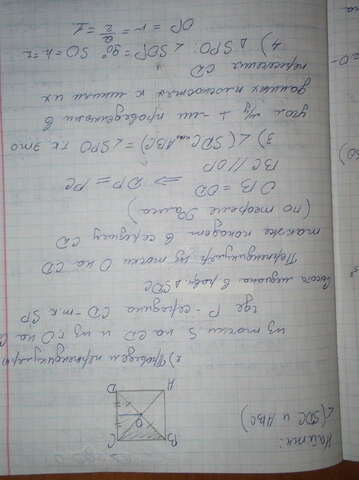 Найти:
∠(SDC и ABC)
A
B
C
D
O
2) Проведем перпендикуляр
из точки S на CD и из т.O на C
где P - середина CD - т.к SP
высота медиана в равн △SDC
Перпендикуляр из точки O на CD
также попадет в середину CD
(по теореме Фалеса)
OB = OD ⇒ DP = PC
BC // OP
3) ∠(SDC и ABC) = ∠SPO т.к это
угол м/у ⊥-ми проведенными в
данных плоскостях к линии их
пересечения CD
4) △SPO ∠SOP = 90° SO = h = 2
OP = r = a/2 = 1